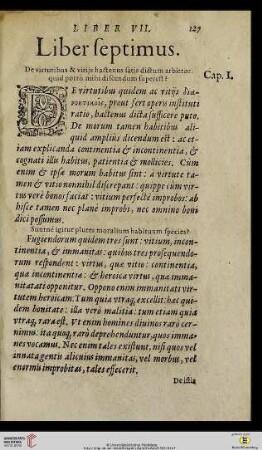 LIBER VII. 127
Liber septimus.
De virtutibus & vitijs hactenus satis dictum arbitror:
quid porrò mihi dicendum superest?
Cap. I.
DE virtutibus quidem ac vitijs
prout fert operis instituti
ratio, hactenus dicta sufficere puto.
De morum tamen habitibus ali-
quid amplius dicendum est: ac et-
iam explicanda continentia & incontinentia, &
cognati illis habitus, patientia & mollicies. Cùm
enim & ipsæ morum habitus sint: à virtute ta-
men & vitio nonnihil discrepant: quippe cùm vir-
tus verè bonos faciat: vitium perfectè improbos: ab
hisce tamen nec planè improbi, nec omnino boni
dici possumus.
Suntne igitur plures moralium habituum species?
Fugiendorum quidem tres sunt: vitium, incon-
tinentia, & immanitas: quibus tres prosequendo-
rum respondent: virtus, quæ vitio: continentia,
quæ incontinentiæ: & heroica virtus, quæ imma-
nitati opponitur. Oppono enim immanitati vir-
tutem heroicam. Tum quia vtraq, excellit: hæc qui-
dem bonitate: illa verò malitia: tum etiam quia
vtraq, rara est. Vt enim homines diuinos rarò cer-
nimus: ita quoq, rarò deprehenduntur, quos imma-
nes vocamus. Nec enim tales existunt, nisi quos vel
innata gentis alicuius immanitas, vel morbus, vel
enormis improbitas, tales effecerit.
De istis